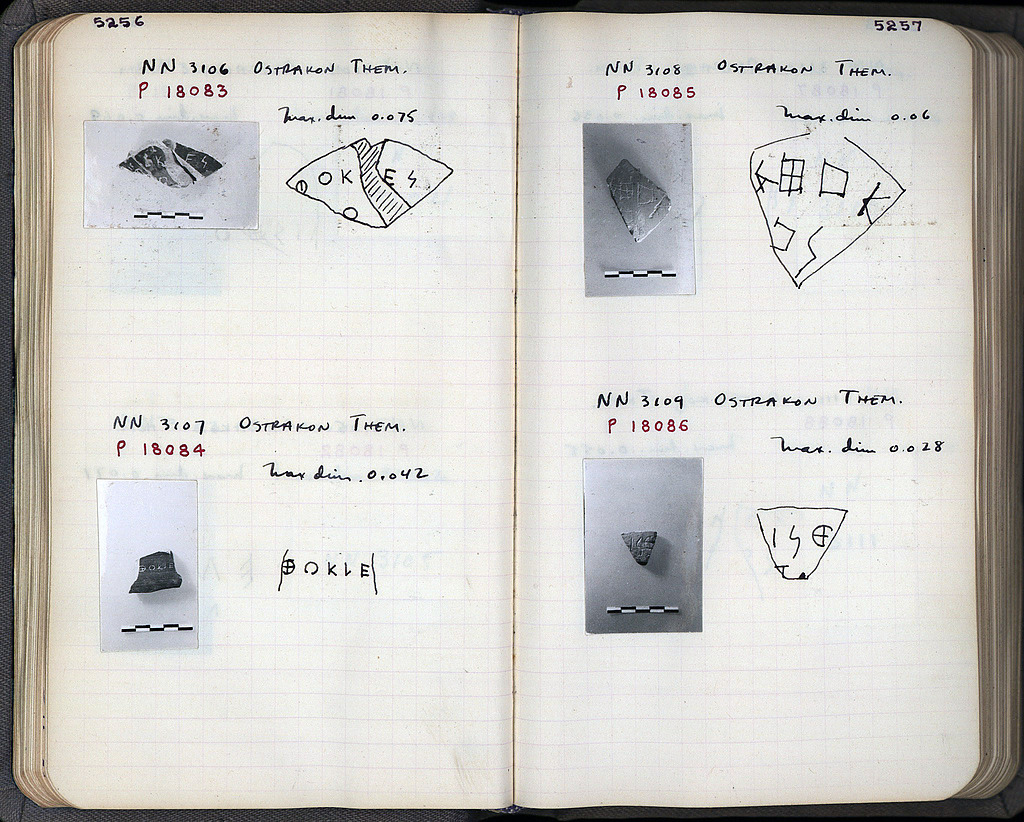 5256
NN 3106 OSTRAKON THEM.
P 18083
Max. dim 0.075
OK ES
NN 3107 OSTRAKON THEM.
P 18084
Max dim. 0.042
⊕OKLE
5257
NN 3108 OSTRAKON THEM.
P 18085
Max. dim 0.06
NN 3109 OSTRAKON THEM.
P 18086
Max. dim 0.028
IS⊕